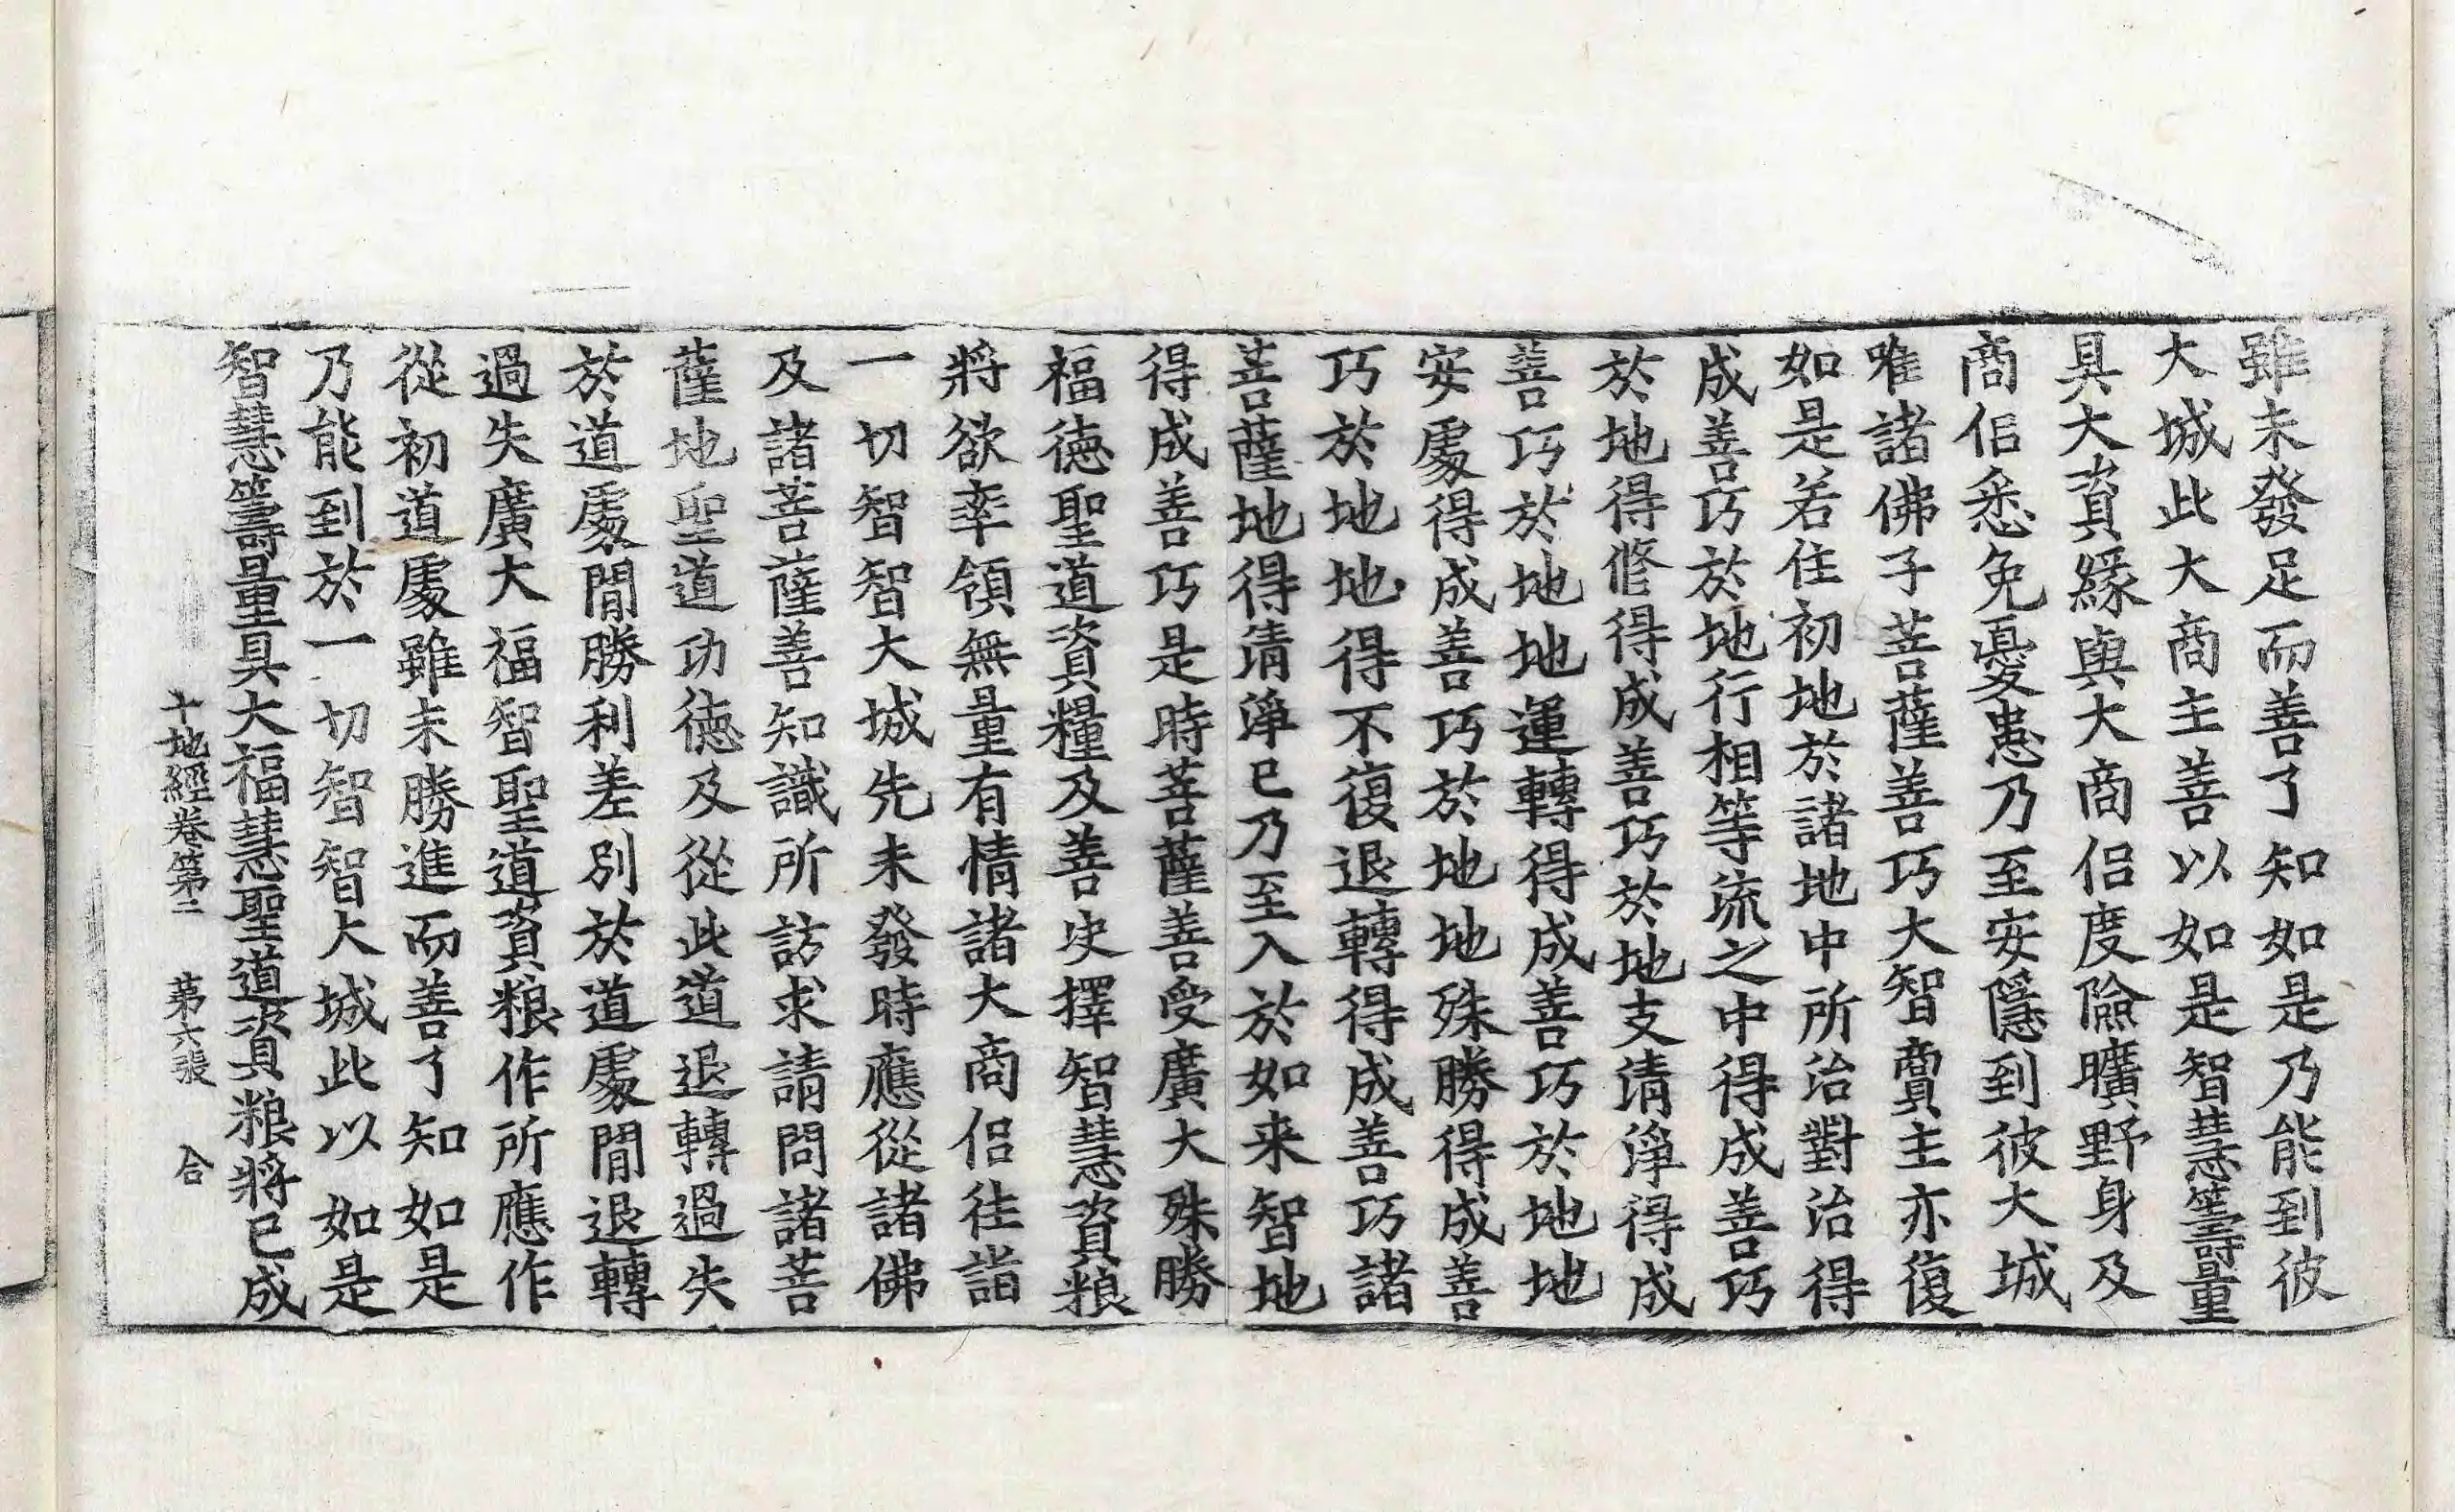 雖未發足而善了知如是乃能到彼
大城此大商主善以如是智慧籌量
具大資緣與大商侶度險曠野身及
商侶悉免憂患乃至安隱到彼大城
唯諸佛子菩薩善巧大智賣主亦復
如是若住初地於諸地中所治對治得
成善巧於地行相等流之中得成善巧
於地得修得成善巧於地支清淨得成
善巧於地地運轉得成善巧於地地
安處得成善巧於地地殊勝得成善
巧於地地得不復退轉得成善巧諸
菩薩地得清淨已乃至入於如来智地
得成善巧是時菩薩善受廣大殊勝
福德聖道資糧及善决擇智慧資粮
將欲率領無量有情諸大商侶往詣
一切智智大城先未發時應從諸佛
及諸菩薩善知識所訪求請問諸菩
薩地聖道功德及從此道退轉過失
於道處閒勝利差別於道處閒退轉
過失廣大福智聖道資粮作所應作
從初道處雖未勝進而善了知如是
乃能到於一切智智大城此以如是
智慧籌量具大福慧聖道資粮將已成
十地經卷第二　第六張　合